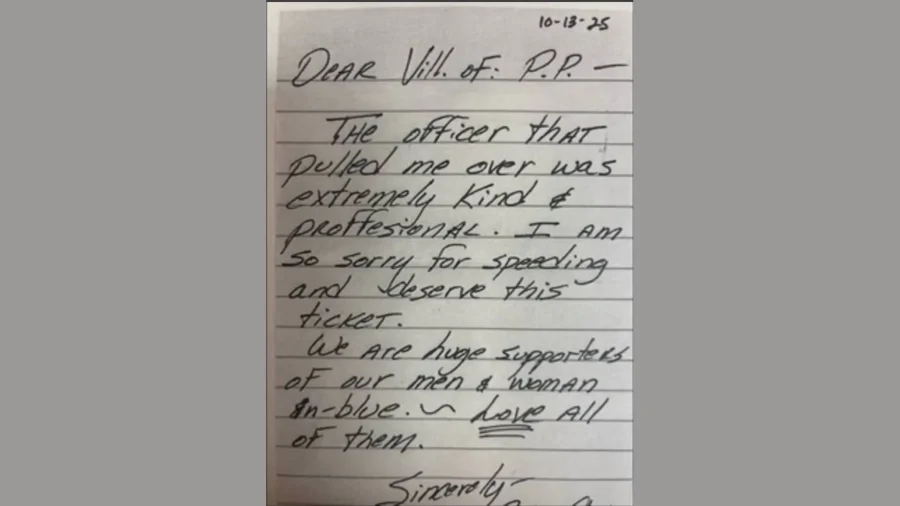 10-13-25
Dear Vill. of: P.P. —
The officer that
pulled me over was
extremely kind &
proffesional. I am
so sorry for speeding
and deserve this
ticket.
We are huge supporters
of our men & woman
in-blue. ~ Love all
of them.
Sincerely-